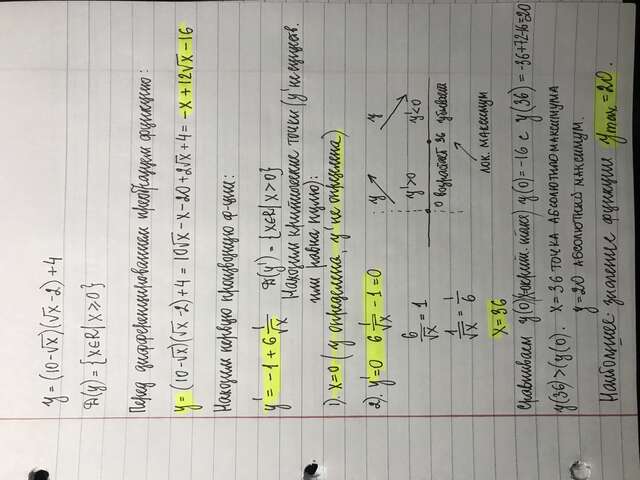 y = (10-√x)(√x-2)+4
D(y) = {x∈R | x≥0}
Перед дифференцированием преобразуем функцию:
y = (10-√x)(√x-2)+4 = 10√x-x-20+2√x+4 = -x+12√x-16
Находим первую производную ф-ции:
y' = -1+6 1/√x D(y') = {x∈R | x>0}
Находим критические точки (y' не существ.
или равна нулю):
1). x=0 (y определена, y' не определена)
2). y'=0 6 1/√x - 1 = 0
y y
6/√x = 1
y'>0 y'<0
0 возрастает 36 убывает
1/√x = 1/6
лок. максимум
x = 36
Сравниваем y(0) y(0) = -16 с y(36) = -36+72-16=20
y(36) > (y(0). x=36 точка абсолютного максимума
y=20 абсолютный максимум.
Наибольшее значение функции ymax = 20.